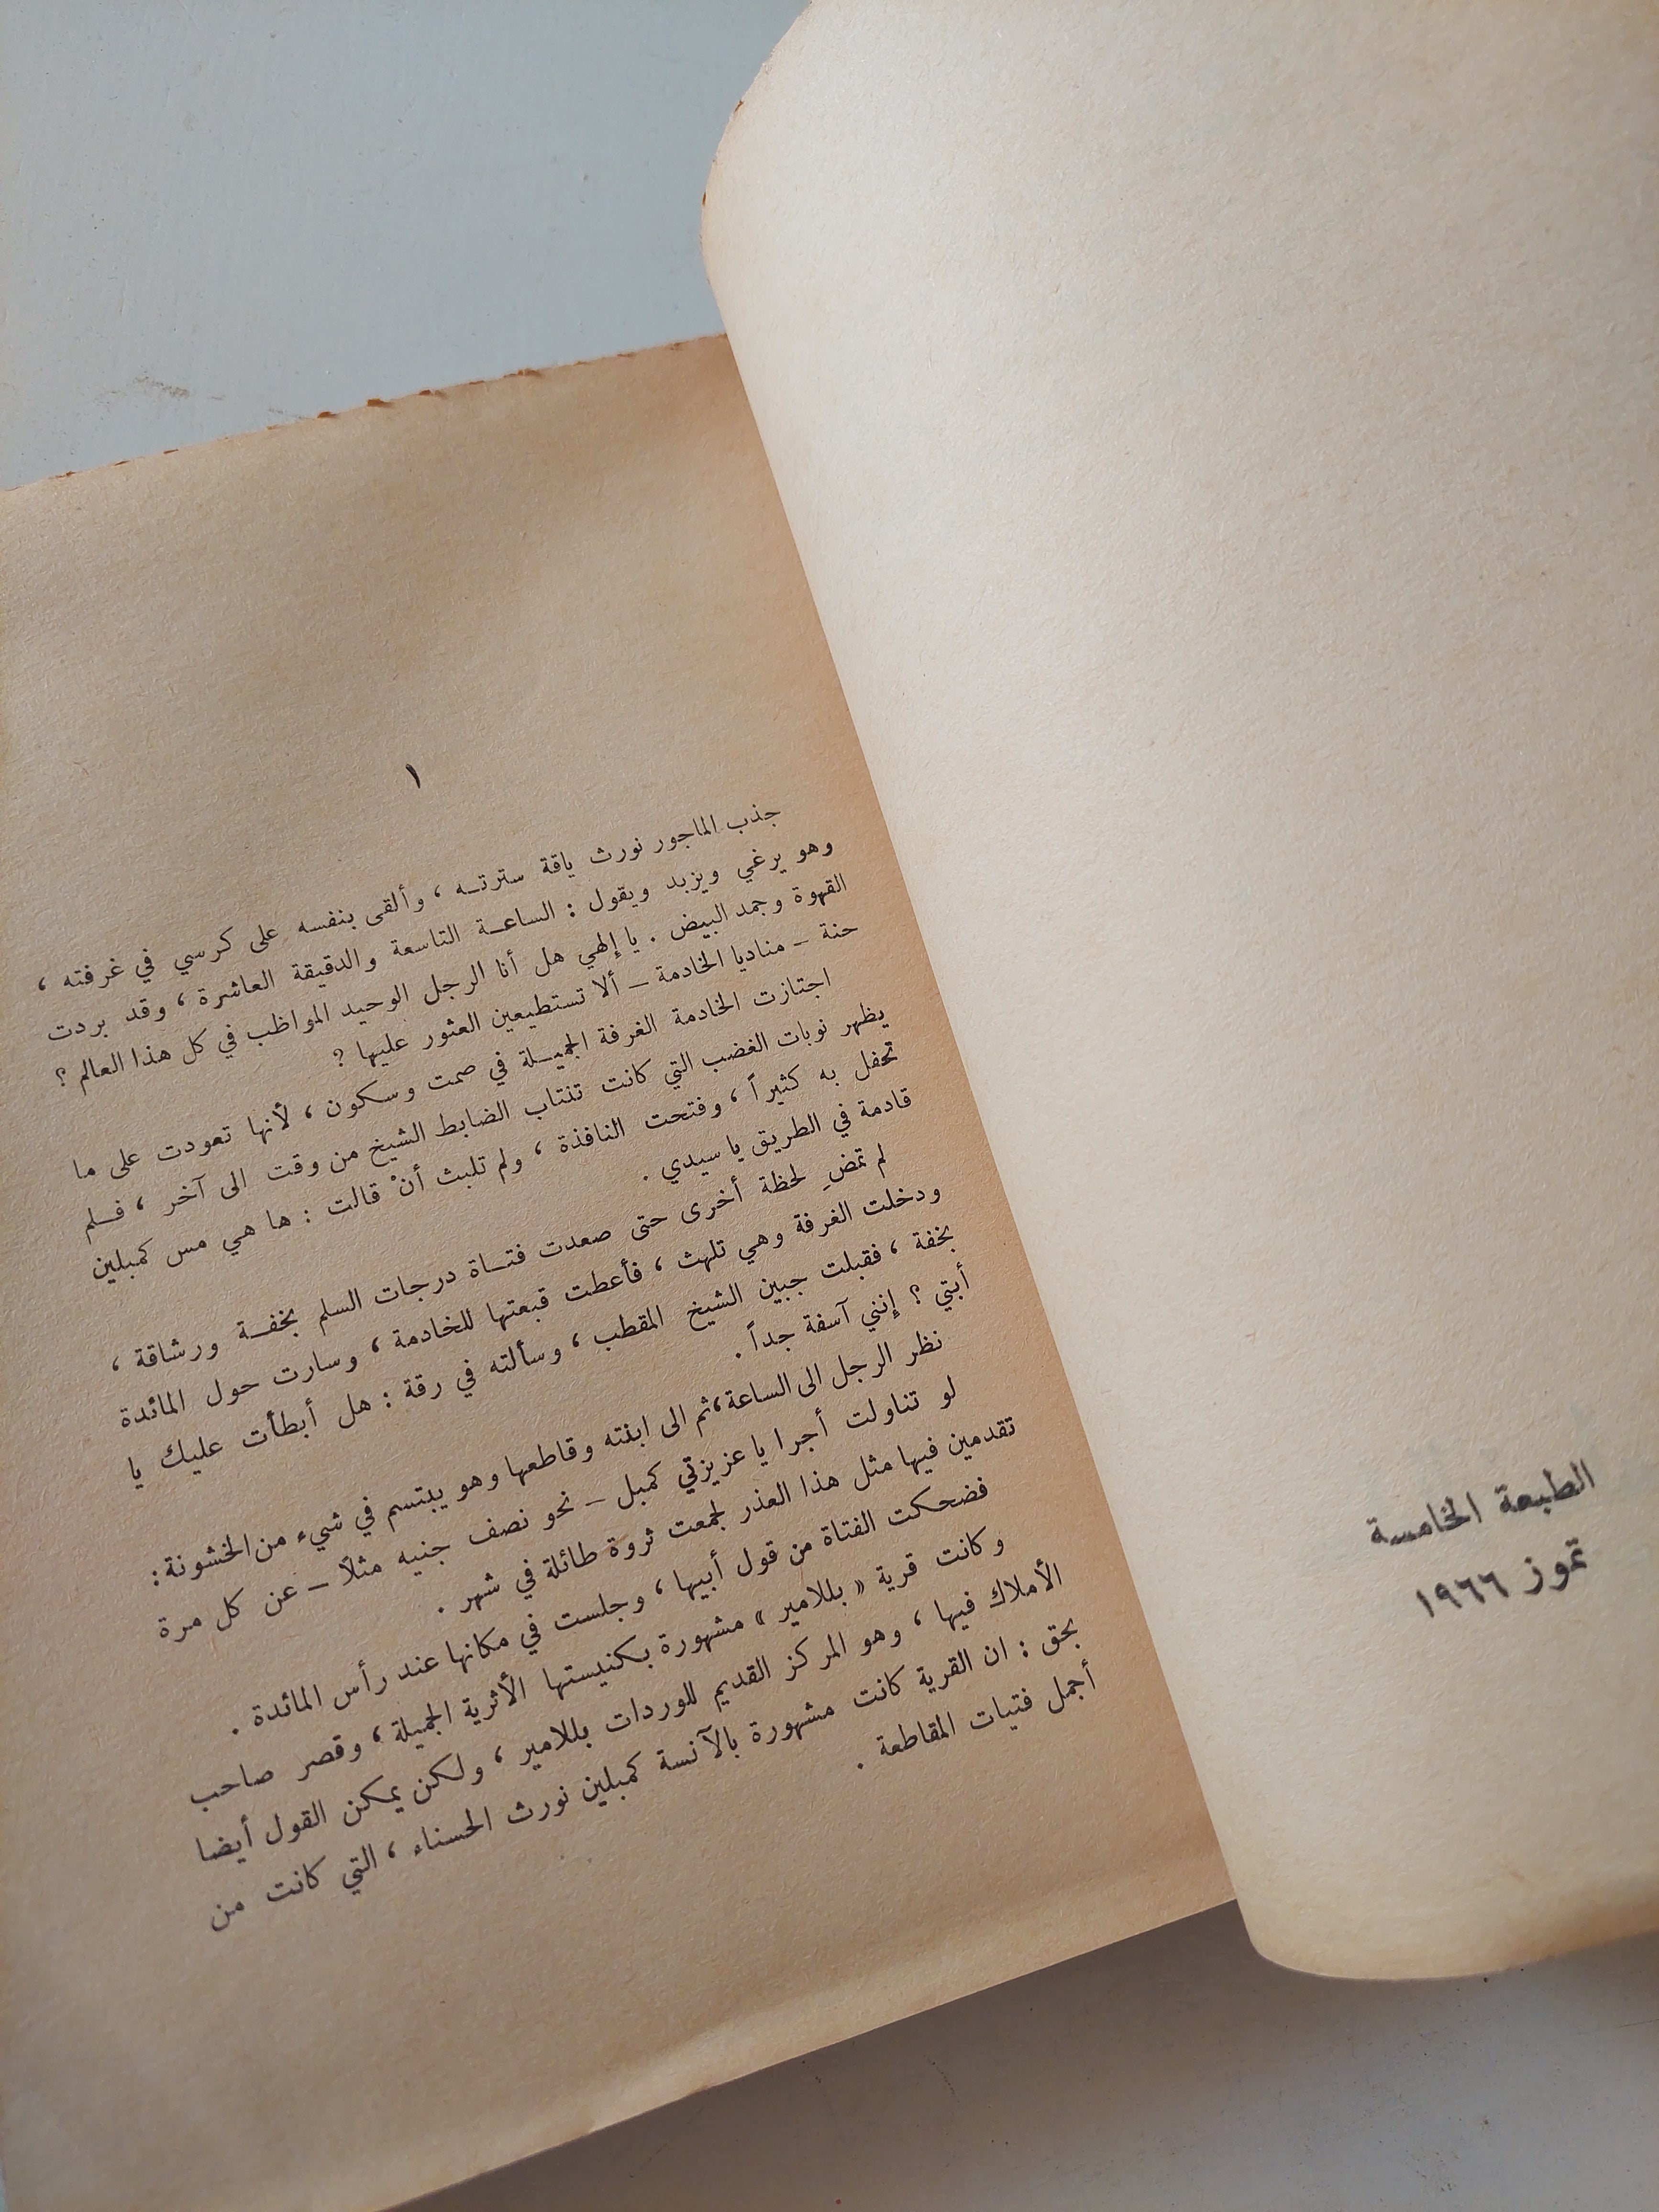 الطبعة الخامسة
تموز ١٩٦٦
١
جذب الماجور نورث ياقة سترته ، وألقى بنفسه على كرسي في غرفته ،
وهو يرغي ويزبد ويقول : الساعة التاسعة والدقيقة العاشرة ، وقد بردت
القهوة وجمد البيض . يا إلهي هل أنا الرجل الوحيد المواظب في كل هذا العالم ؟
حنة – مناديا الخادمة – ألا تستطيعين العثور عليها ?
اجتازت الخادمة الغرفة الجميلة في صمت وسكون ، لأنها تعودت على ما
يظهر نوبات الغضب التي كانت تنتاب الضابط الشيخ من وقت الى آخر ، فلم
تحفل به كثيراً ، وفتحت النافذة ، ولم تلبث أنْ قالت : ها هي مس كمبلين
قادمة في الطريق يا سيدي .
لم تمضِ لحظة أخرى حتى صعدت فتاة درجات السلم بخفة ورشاقة ،
ودخلت الغرفة وهي تلهث ، فأعطت قبعتها للخادمة ، وسارت حول المائدة
بخفة ، فقبلت جبين الشيخ المقطب ، وسألته في رقة : هل أبطأت عليك يا
أبتي ؟ إنني آسفة جداً .
نظر الرجل الى الساعة ، ثم الى ابنته وقاطعها وهو يبتسم في شيء من الخشونة :
لو تناولت أجرا يا عزيزتي كمبل – نحو نصف جنيه مثلاً – عن كل مرة
تقدمين فيها مثل هذا العذر لجمعت ثروة طائلة في شهر .
فضحكت الفتاة من قول أبيها ، وجلست في مكانها عند رأس المائدة .
وكانت قرية « بللامير » مشهورة بكنيستها الأثرية الجميلة ، وقصر صاحب
الأملاك فيها ، وهو المركز القديم للوردات بللامير ، ولكن يمكن القول أيضا
بحق : ان القرية كانت مشهورة بالآنسة كمبلين نورث الحسناء ، التي كانت من
أجمل فتيات المقاطعة .